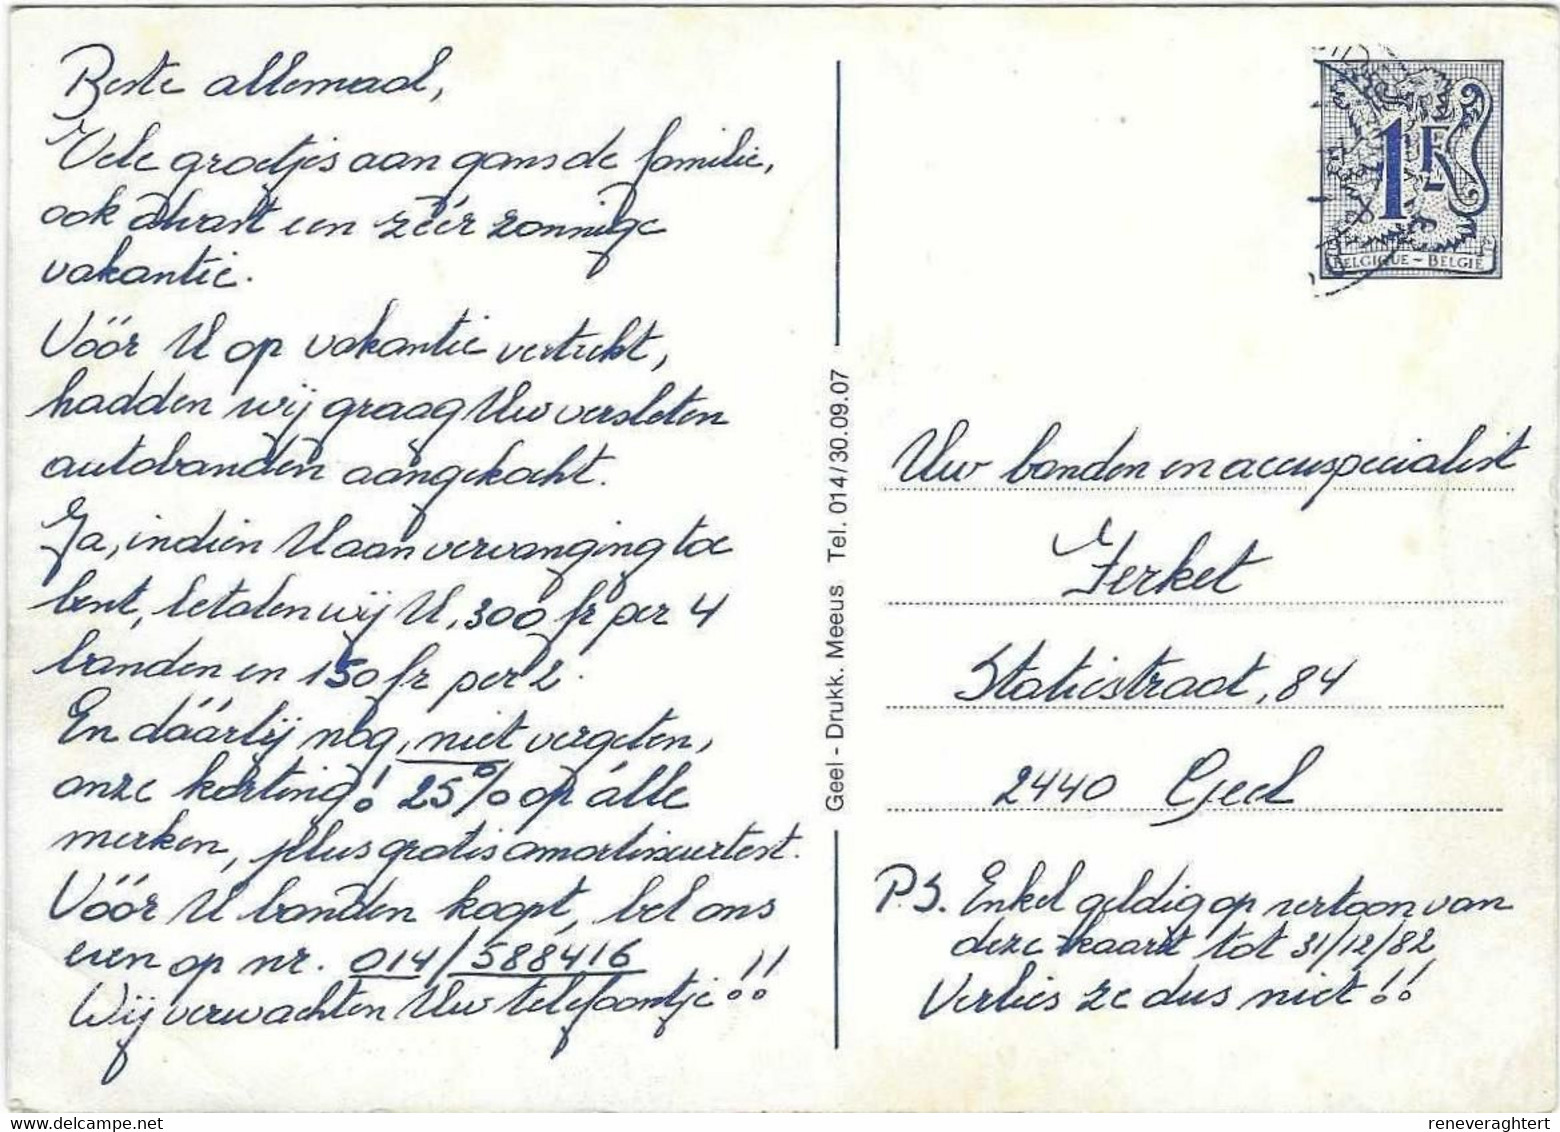 Beste allemaal,
Vele groetjes aan gans de familie,
ook alvast een zéér zonnige
vakantie.
Vóór U op vakantie vertrekt,
hadden wij graag Uw versleten
autobanden aangekocht.
Ja, indien U aan vervanging toe
bent, betalen wij U, 300 fr per 4
banden en 150 fr per 2.
En dáárbij nog, niet vergeten,
onze korting! 25% op álle
merken, plus gratis amortisseurtest.
Vóór U banden koopt, bel ons
even op nr. 014/588416
Wij verwachten Uw telefoontje!!
Geel - Drukk. Meeus Tel. 014/30.09.07
1F
BELGIQUE - BELGIË
Uw banden en accuspecialist
Ferket
Statiestraat, 84
2440 Geel
P.S. Enkel geldig op vertoon van
deze kaart tot 31/12/82
Verlies ze dus niet!!
reneveraghtert